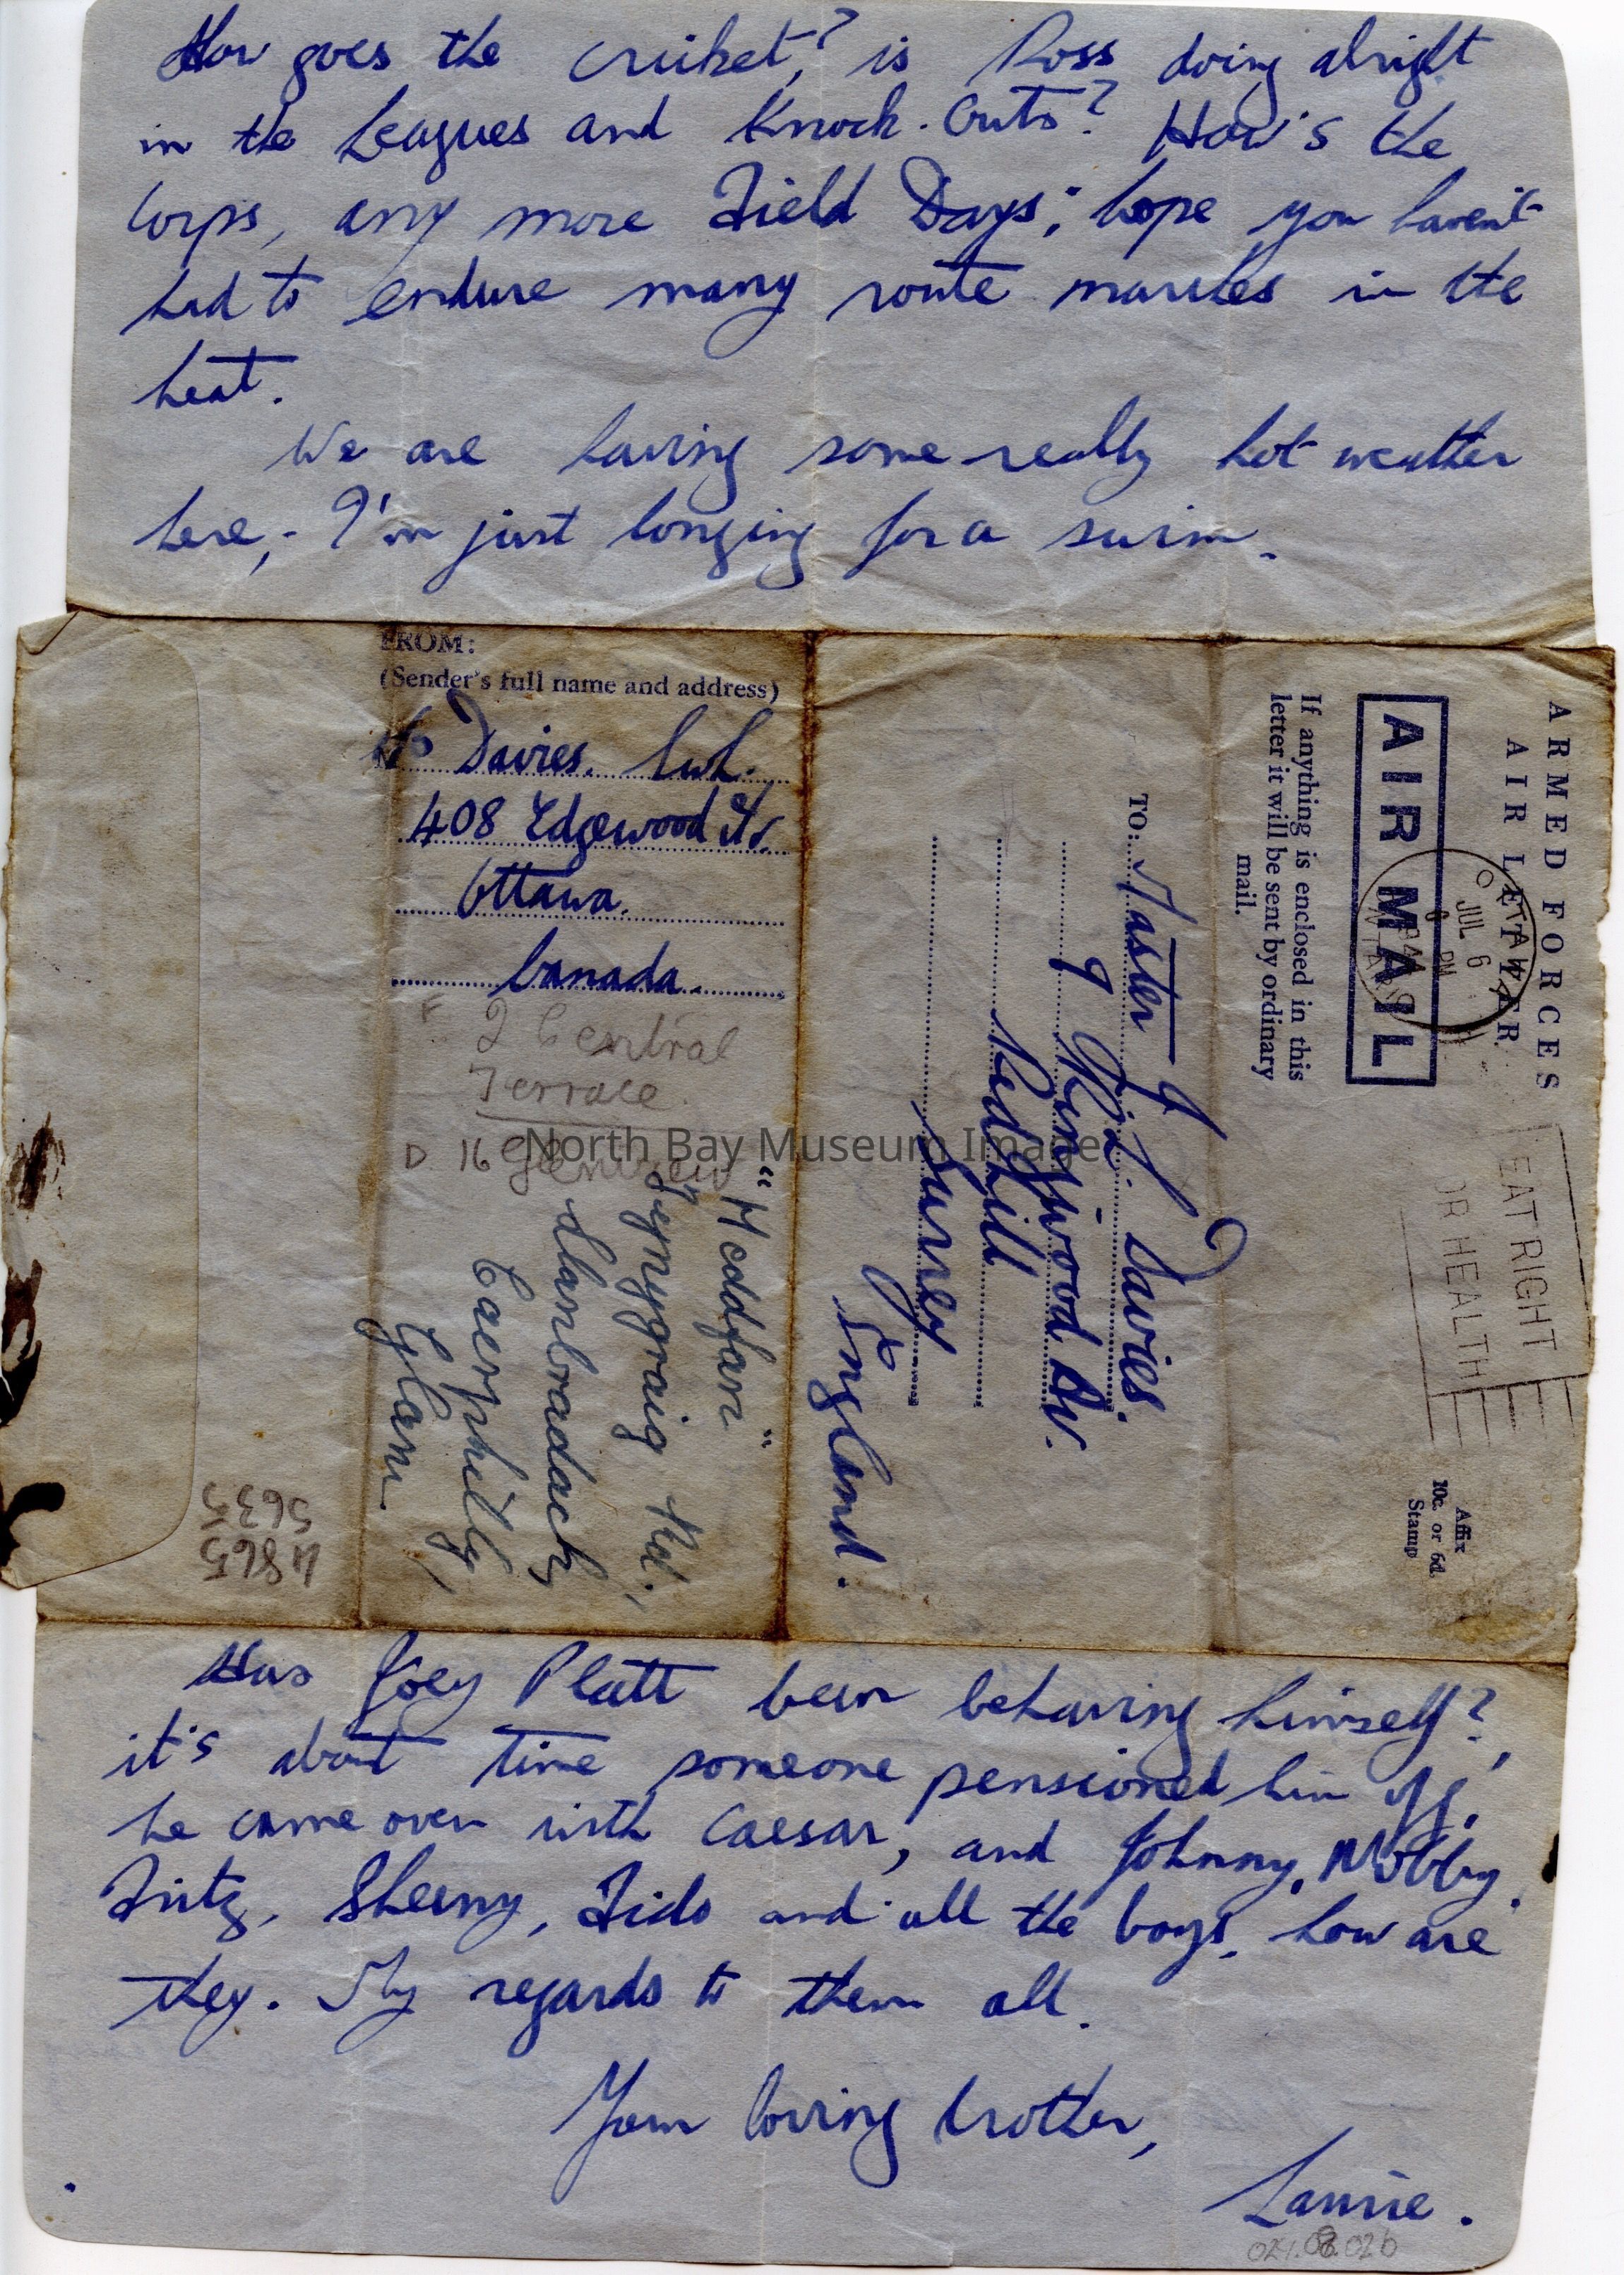 How goes the cricket,? is Ross doing alright
in the Leagues and Knock-Outs? How's the
Corps, any more Field Days; hope you haven't
had to endure many route marches in the
heat.
We are having some really hot weather
here,- I'm just longing for a swim.
FROM:
(Sender's full name and address)
Davies.
408 Edgewood Av.
Ottawa.
Canada.
F 2 Central
Terrace
D 16
"
Rd.,
Llanbradach
Caerphilly,
Glam.
4865
5635
ARMED FORCES
AIR LETTER
AIR MAIL
If anything is enclosed in this
letter it will be sent by ordinary
mail.
OTTAWA
JUL 6
PM
EAT RIGHT
FOR HEALTH
Affix
10c. or 6d.
Stamp
TO: Master J. L. Davies.
9 Ringwood Av.
Redhill
Surrey
England.
North Bay Museum Image
Has Joey Platt been behaving himself?,
it's about time someone pensioned him off,
he came over with Caesar, and Johnny, Nobby,
Fritz, Sheeny, Fido and all the boys, how are
they. My regards to them all.
Your loving brother,
Laurie.
024.08.026